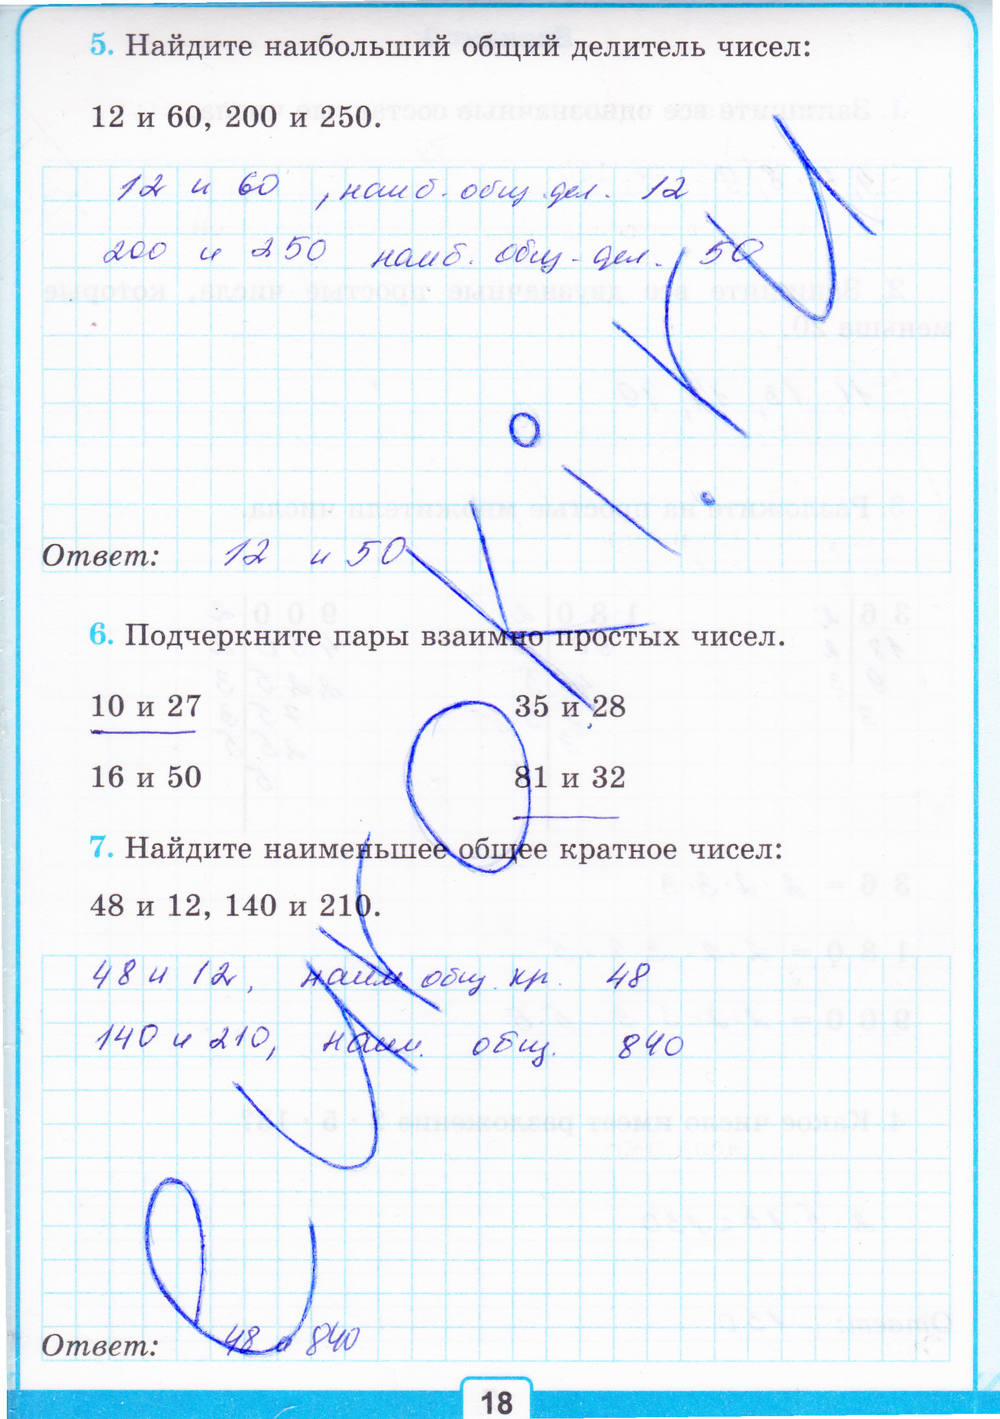 5. Найдите наибольший общий делитель чисел:
12 и 60, 200 и 250.
12 и 60 , наиб. общ. дел. 12
200 и 250 наиб. общ. дел. 50
Ответ: 12 и 50
6. Подчеркните пары взаимно простых чисел.
10 и 27 35 и 28
16 и 50 81 и 32
7. Найдите наименьшее общее кратное чисел:
48 и 12, 140 и 210.
48 и 12, наим общ. кр. 48
140 и 210, наим. общ. 840
Ответ: 48 и 840
18